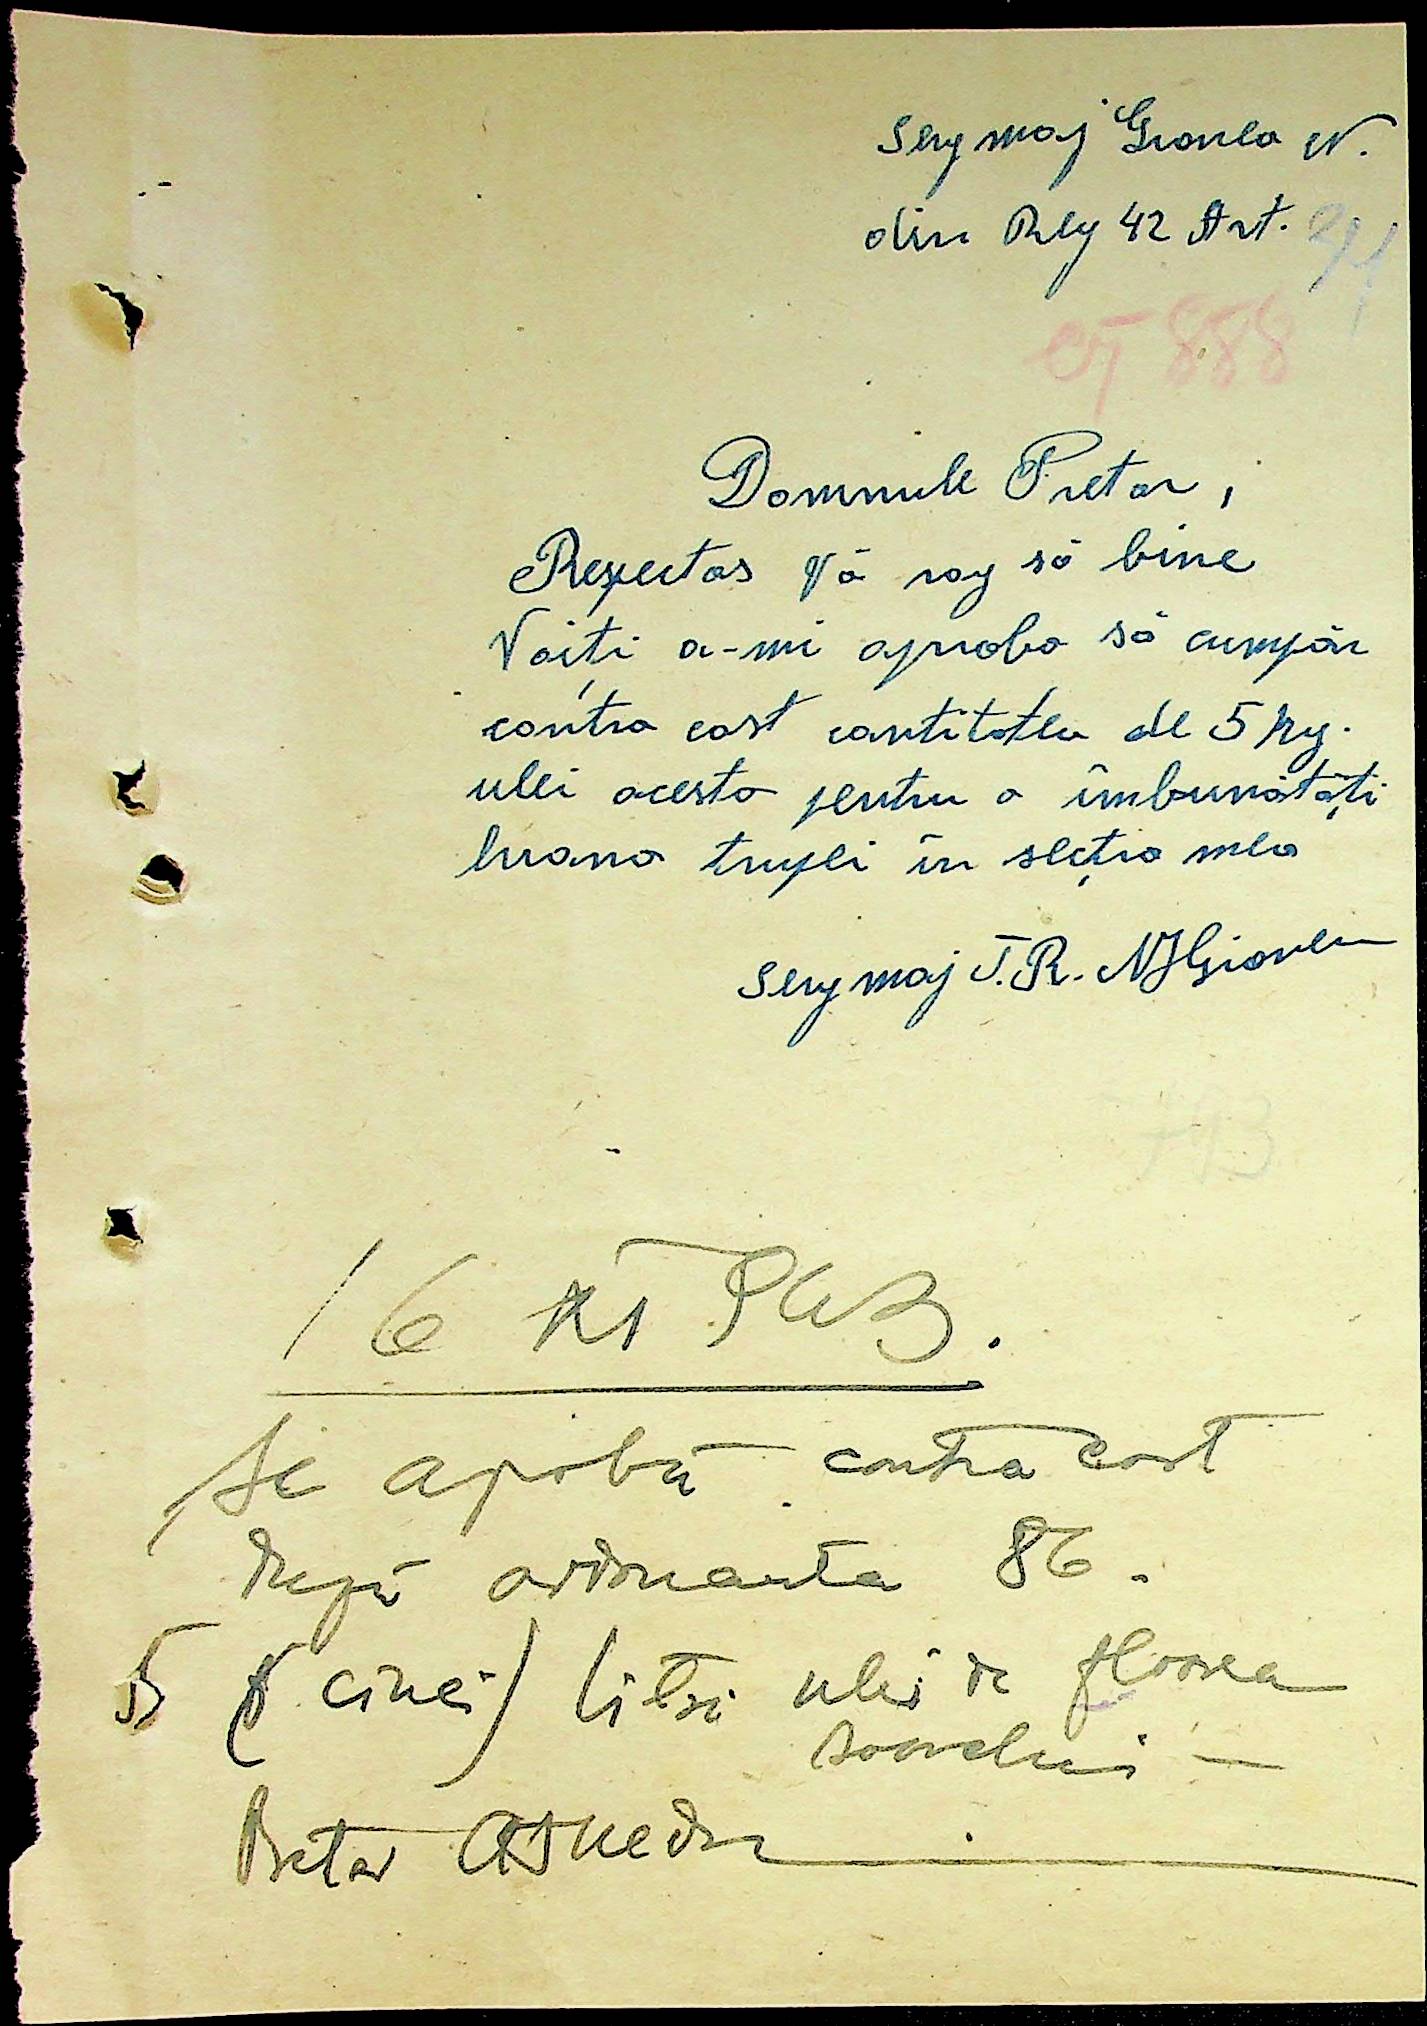 Serg maj Gronea N.
din Reg 42 Art.
888
Domnule Pretor,
Respectos Vă rog să bine
Voiți a-mi aproba să cumpăr
contra cost cantitatea de 5 kg.
ulei acesta pentru a îmbunătăți
hrana trupei în secția mea
Serg maj T.R.
793
16 XI 943.
Se aprobă contra cost
după ordonanta 86.
5 (cinci) litri ulei de floarea
soarelui —
Pretor